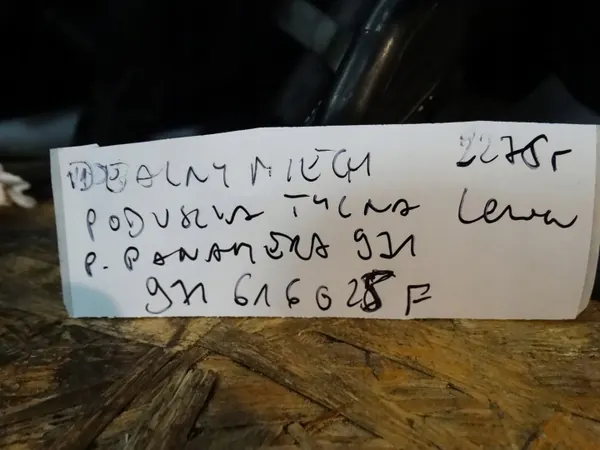 IDEALNY MIECH 2275r
PODUSZKA TYLNA Lewa
P. PANAMERA 971
971 616 028 F